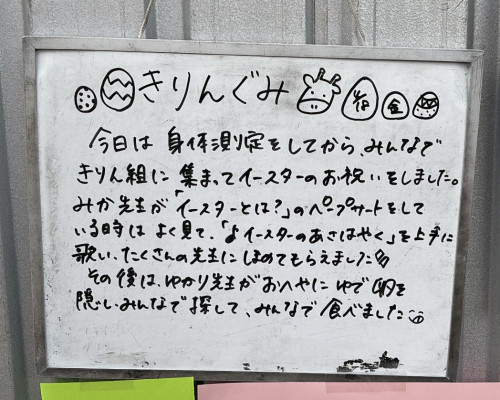 きりんぐみ
今日は身体測定をしてから、みんなで
きりん組に集まってイースターのお祝いをしました。
みか先生が「イースターとは?」のペープサートをして
いる時はよく見て、「♪イースターのあさはやく」を上手に
歌い、たくさんの先生にほめてもらえました
その後は、ゆかり先生がおへやにゆで卵を
隠し、みんなで探して、みんなで食べました